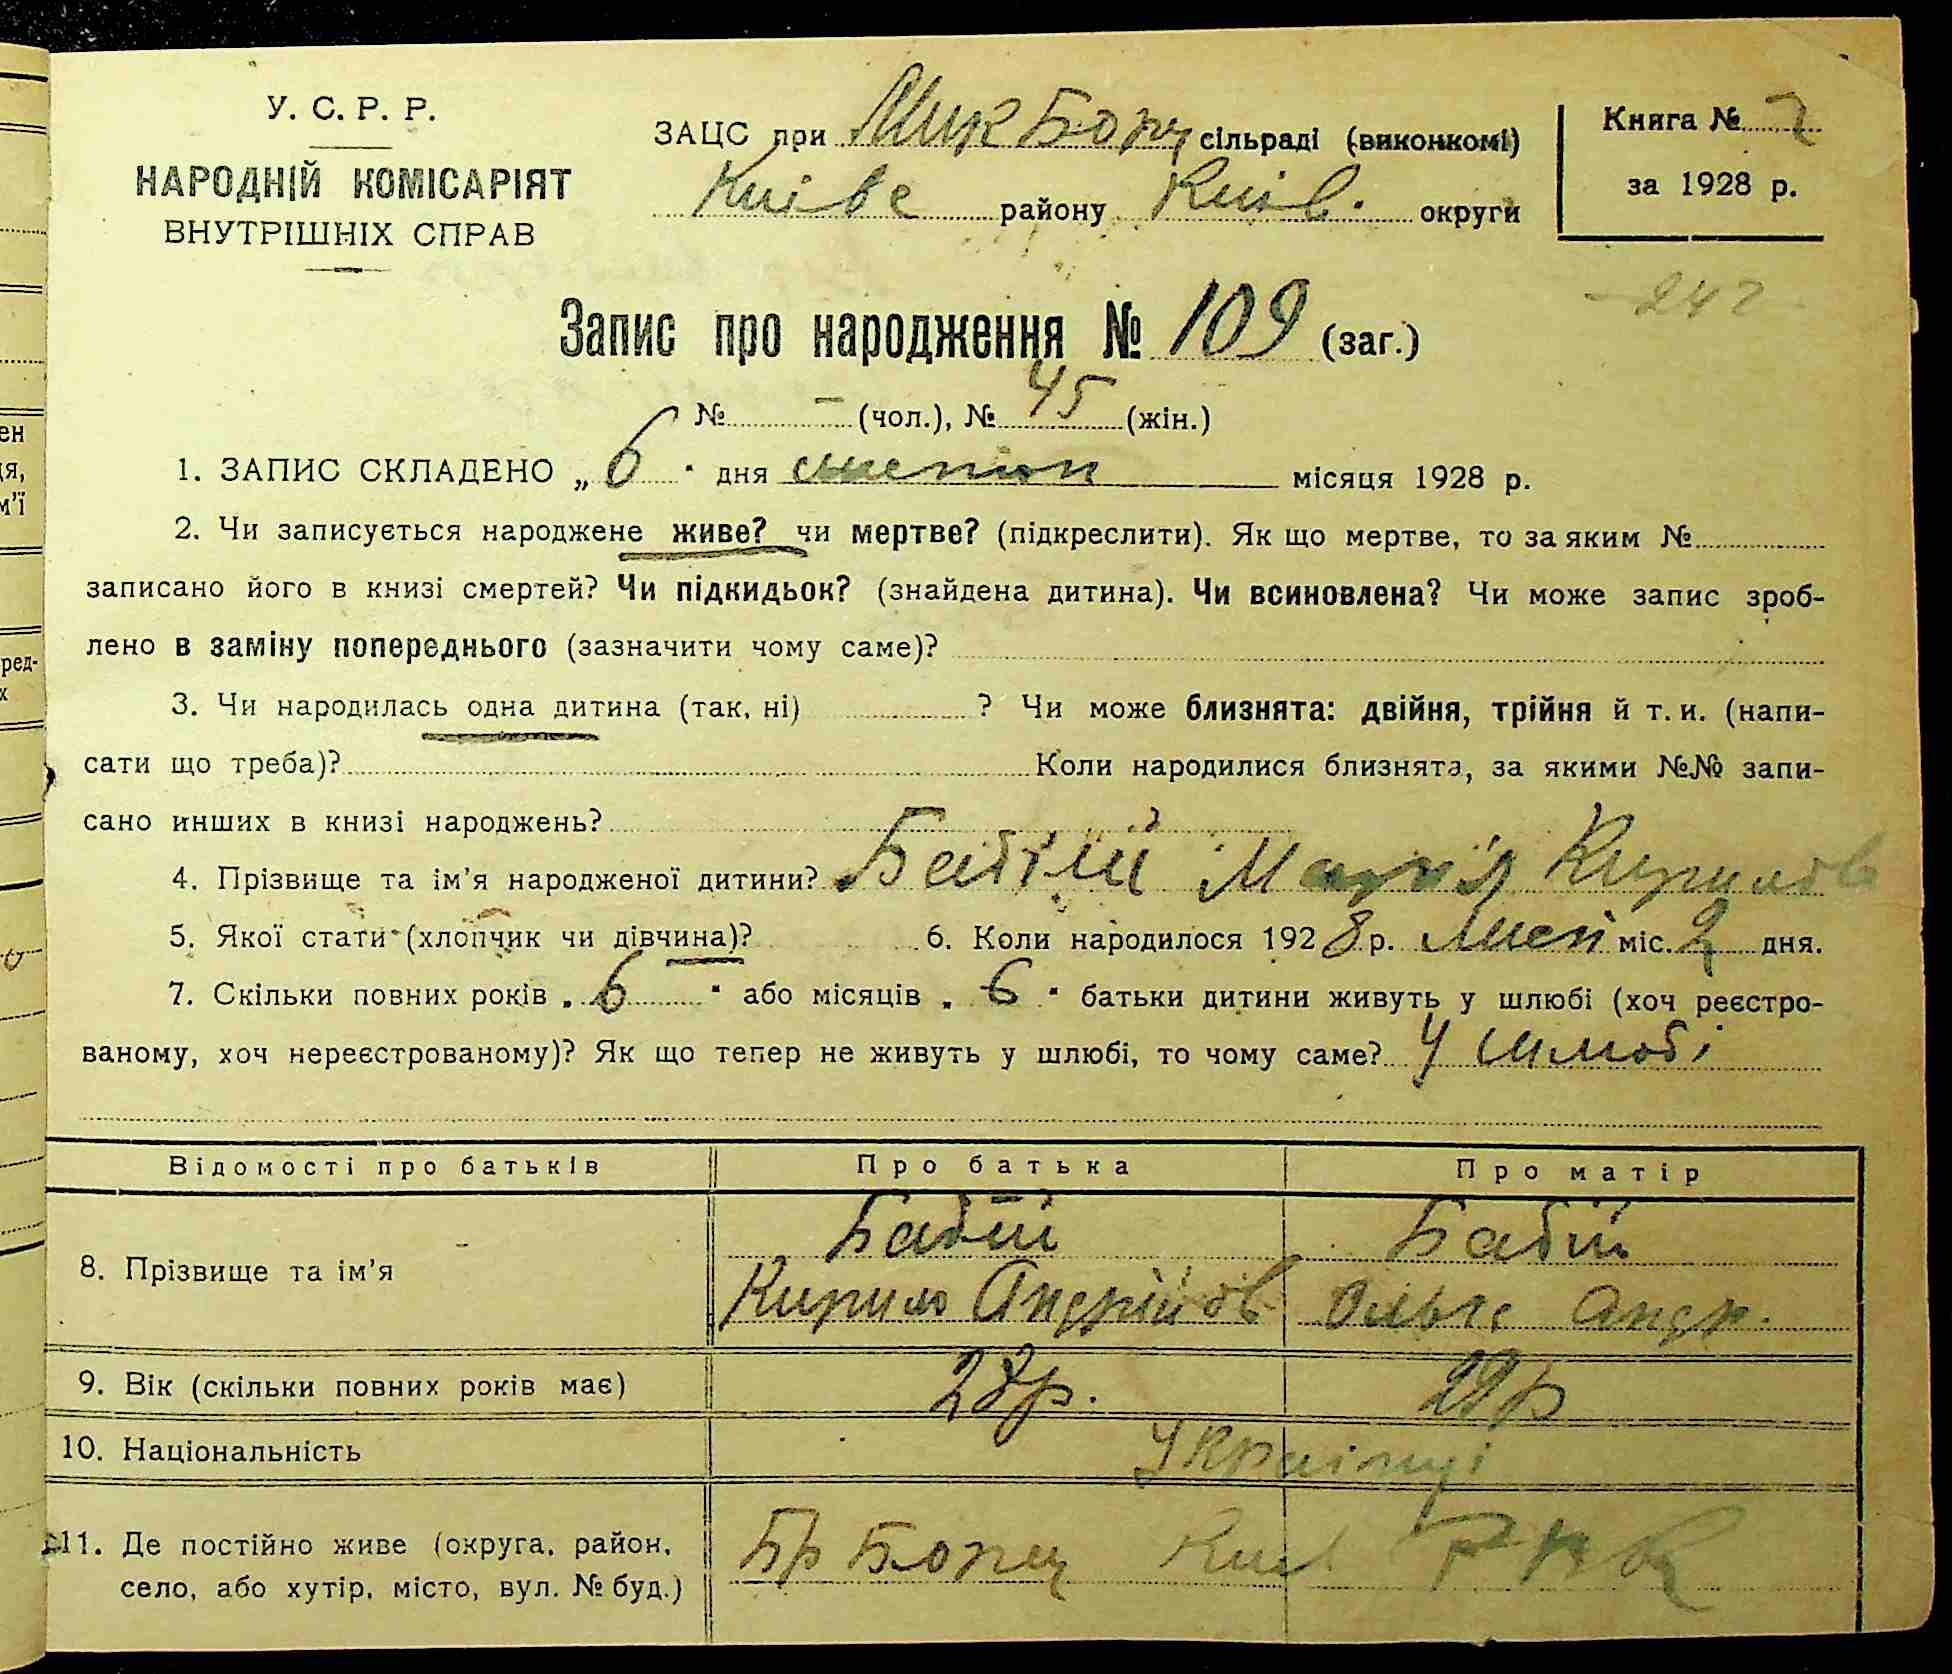 У. С. Р. Р.
НАРОДНІЙ КОМІСАРІЯТ
ВНУТРІШНІХ СПРАВ
ЗАЦС при Мик Борщ сільраді (виконкомі)
Київс району Київ. округи
Книга №
за 1928 р.
Запис про народження № 109 (заг.)
№ – (чол.), № 45 (жін.)
1. ЗАПИС СКЛАДЕНО „ 6 " дня місяця 1928 р.
2. Чи записується народжене живе? чи мертве? (підкреслити). Як що мертве, то за яким №
записано його в книзі смертей? Чи підкидьок? (знайдена дитина). Чи всиновлена? Чи може запис зроб-
лено в заміну попереднього (зазначити чому саме)?
3. Чи народилась одна дитина (так, ні) ? Чи може близнята: двійня, трійня й т. и. (напи-
сати що треба)? Коли народилися близнята, за якими №№ запи-
сано инших в книзі народжень?
4. Прізвище та ім'я народженої дитини? Бабій Марія Кирилов
5. Якої стати (хлопчик чи дівчина)? 6. Коли народилося 1928 р. міс. 2 дня.
7. Скільки повних років „ 6 " або місяців „ 6 " батьки дитини живуть у шлюбі (хоч реєстро-
ваному, хоч нереєстрованому)? Як що тепер не живуть у шлюбі, то чому саме? У шлюбі
Відомості про батьків Про батька Про матір
8. Прізвище та ім'я
Бабій Бабій
Кирило Андрійов Ольга Андр.
9. Вік (скільки повних років має) 28р. 29р
10. Національність Українці
11. Де постійно живе (округа, район,
село, або хутір, місто, вул. № буд.)
Борщ Київ.